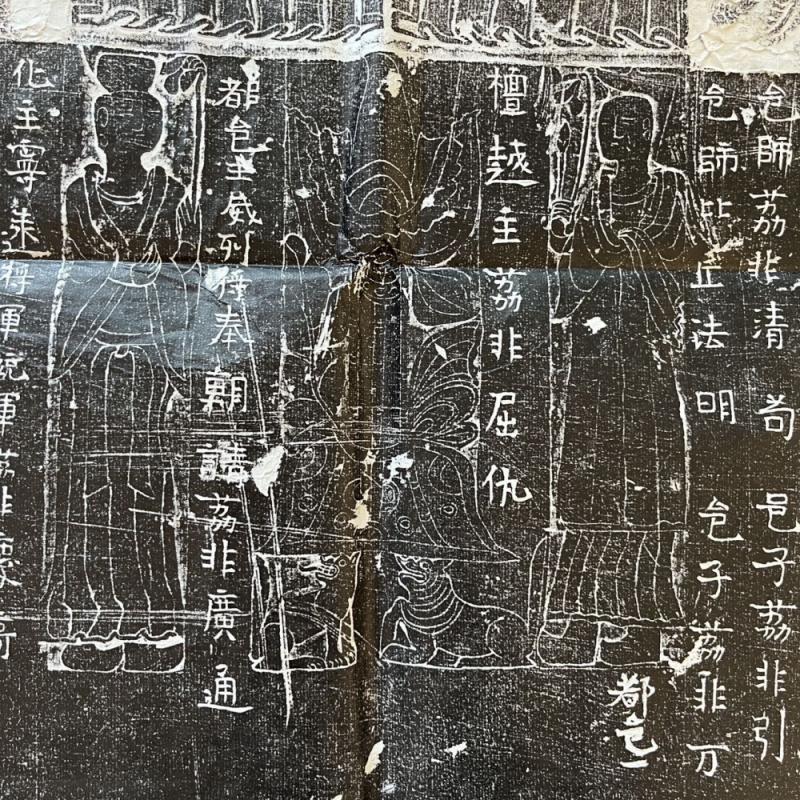 邑師荔非清 苟 邑子荔非引
邑師比丘法明 邑子荔非万
都邑一
檀越主荔非屈仇
都邑主威烈將奉朝請荔非廣通
化主寧朱將軍統軍荔非慶哥